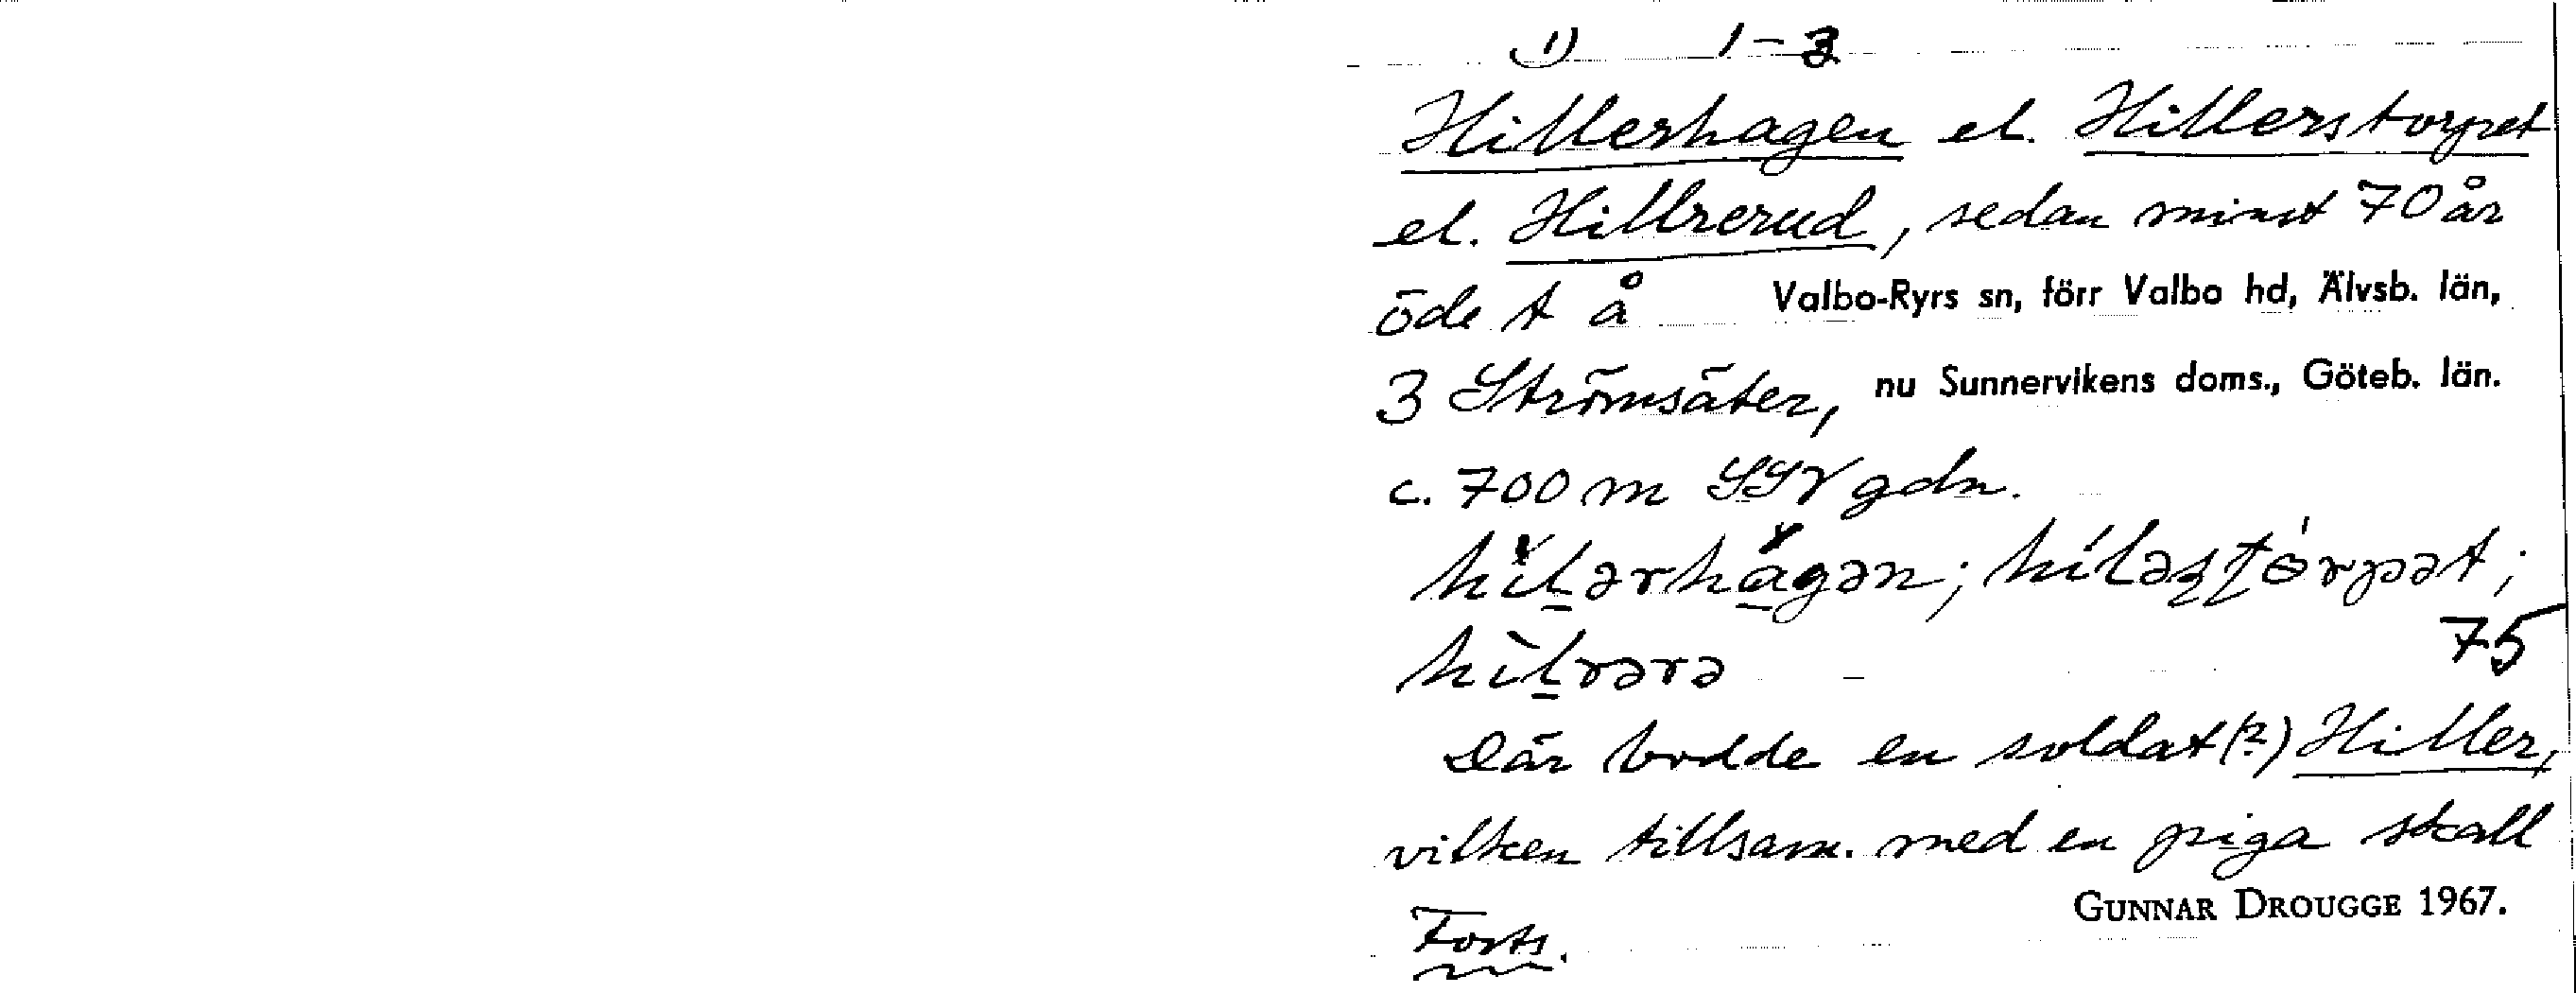 1) 1-3
Hillerhagen el. Hillerstorpet
el. Hillrerud, sedan minst 70 år
öde t å Valbo-Ryrs sn, förr Valbo hd, Älvsb. län,
3 Strömsäter, nu Sunnervikens doms., Göteb. län.
c. 700 m SSV gdn.
75
Där bodde en soldat(?) Hiller,
vilken tillsam. med en piga skall
Forts. GUNNAR DROUGGE 1967.